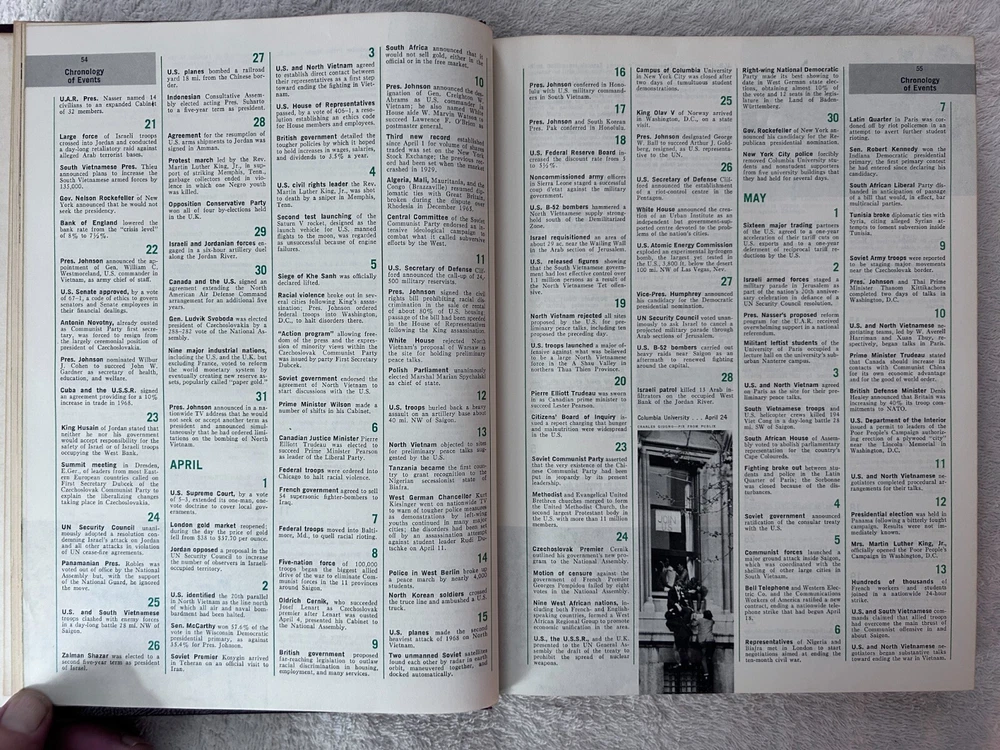 54
Chronology
of Events
U.A.R. Pres. Nasser named 14
civilians to an expanded Cabinet
of 32 members.
21
Large force of Israeli troops
crossed into Jordan and conducted
a day-long retaliatory raid against
alleged Arab terrorist bases.
South Vietnamese Pres. Thieu
announced plans to increase the
South Vietnamese armed forces by
135,000.
Gov. Nelson Rockefeller of New
York announced that he would not
seek the presidency.
Bank of England lowered the
bank rate from the "crisis level"
of 8% to 7½%.
22
Pres. Johnson announced the ap-
pointment of Gen. William C.
Westmoreland, U.S. commander in
Vietnam, as army chief of staff.
U.S. Senate approved, by a vote
of 67-1, a code of ethics to govern
senators and Senate employees in
their financial dealings.
Antonin Novotny, already ousted
as Communist Party first secre-
tary, was forced to resign from
the largely ceremonial position of
president of Czechoslovakia.
Pres. Johnson nominated Wilbur
J. Cohen to succeed John W.
Gardner as secretary of health,
education, and welfare.
Cuba and the U.S.S.R. signed
an agreement providing for a 10%
increase in trade in 1968.
23
King Husain of Jordan stated that
neither he nor his government
would accept responsibility for the
safety of Israel or of Israeli troops
occupying the West Bank.
Summit meeting in Dresden,
E.Ger., of leaders from most East-
ern European countries called on
First Secretary Dubcek of the
Czechoslovak Communist Party to
explain the liberalizing changes
taking place in Czechoslovakia.
24
UN Security Council unani-
mously adopted a resolution con-
demning Israel's attack on Jordan
and all other attacks in violation
of UN cease-fire agreements.
Panamanian Pres. Robles was
voted out of office by the National
Assembly but, with the support
of the National Guard, he ignored
the move.
25
U.S. and South Vietnamese
troops clashed with enemy forces
in a day-long battle 28 mi. NW of
Saigon.
26
Zalman Shazar was elected to a
second five-year term as president
of Israel.
27
U.S. planes bombed a railroad
yard 18 mi. from the Chinese bor-
der.
Indonesian Consultative Assem-
bly elected acting Pres. Suharto
to a five-year term as president.
28
Agreement for the resumption of
U.S. arms shipments to Jordan was
signed in Amman.
Protest march led by the Rev.
Martin Luther King, Jr., in sup-
port of striking Memphis, Tenn.,
garbage collectors ended in vio-
lence in which one Negro youth
was killed.
Opposition Conservative Party
won all of four by-elections held
in the U.K.
29
Israeli and Jordanian forces en-
gaged in a six-hour artillery duel
along the Jordan River.
30
Canada and the U.S. signed an
agreement extending the North
American Air Defense Command
arrangement for an additional five
years.
Gen. Ludvik Svoboda was elected
president of Czechoslovakia by a
288-282 vote of the National As-
sembly.
Nine major industrial nations,
including the U.S. and the U.K. but
excluding France, voted to reform
the world monetary system by
eventually creating new reserve as-
sets, popularly called "paper gold."
31
Pres. Johnson announced in a na-
tionwide TV address that he would
not seek or accept another term as
president and announced simul-
taneously that he had ordered limi-
tations on the bombing of North
Vietnam.
APRIL
1
U.S. Supreme Court, by a vote
of 5-3, extended its one-man, one-
vote doctrine to cover local gov-
ernments.
London gold market reopened;
during the day the price of gold
fell from $38 to $37.70 per ounce.
Jordan opposed a proposal in the
UN Security Council to increase
the number of observers in Israeli-
occupied territory.
2
U.S. identified the 20th parallel
in North Vietnam as the line north
of which all air and naval bom-
bardment had been halted.
Sen. McCarthy won 57.6% of the
vote in the Wisconsin Democratic
presidential primary, as against
35.4% for Pres. Johnson.
Soviet Premier Kosygin arrived
in Teheran on an official visit to
Iran.
3
U.S. and North Vietnam agreed
to establish direct contact between
their representatives as a first step
toward ending the fighting in Viet-
nam.
U.S. House of Representatives
passed, by a vote of 406-1, a reso-
lution establishing an ethics code
for House members and employees.
British government detailed the
tougher policies by which it hoped
to held increases in wages, salaries,
and dividends to 3.5% a year.
4
U.S. civil rights leader the Rev.
Martin Luther King, Jr., was shot
to death by a sniper in Memphis,
Tenn.
Second test launching of the
Saturn V rocket, designed as the
launch vehicle for U.S. manned
flights to the moon, was regarded
as unsuccessful because of engine
failures.
5
Siege of Khe Sanh was officially
declared lifted.
Racial violence broke out in sev-
eral cities following King's assas-
sination; Pres. Johnson ordered
federal troops into Washington,
D.C., to halt disorders there.
"Action program" allowing free-
dom of the press and the expres-
sion of minority views within the
Czechoslovak Communist Party
was issued by party First Secretary
Dubcek.
Soviet government endorsed the
agreement of North Vietnam to
start discussions with the U.S.
Prime Minister Wilson made a
number of shifts in his Cabinet.
6
Canadian Justice Minister Pierre
Elliott Trudeau was elected to
succeed Prime Minister Pearson
as leader of the Liberal Party.
Federal troops were ordered into
Chicago to halt racial violence.
French government agreed to sell
54 supersonic fighter-bombers to
Iraq.
7
Federal troops moved into Balti-
more, Md., to quell racial rioting.
8
Five-nation force of 100,000
troops began the biggest allied
drive of the war to eliminate Com-
munist forces in the 11 provinces
around Saigon.
Oldrich Cernik, who succeeded
Josef Lenart as Czechoslovak
premier after Lenart resigned on
April 4, presented his Cabinet to
the National Assembly.
9
British government proposed
far-reaching legislation to outlaw
racial discrimination in housing,
employment, and many services.
South Africa announced that it
would not sell gold, either in the
official or in the free market.
10
Pres. Johnson announced the
ignation of Gen. Creighton W.
Abrams as U.S. commander in
Vietnam; he also named White
House aide W. Marvin Watson to
succeed Lawrence F. O'Brien as
postmaster general.
Third new record established
since April 1 for volume of shares
traded was set on the New York
Stock Exchange; the previous rec-
ord had been set when the market
crashed in 1929.
Algeria, Mali, Mauritania, and the
Congo (Brazzaville) resumed dip-
lomatic ties with Great Britain,
broken during the dispute over
Rhodesia in December 1965.
Central Committee of the Soviet
Communist Party ordered an in-
tensive ideological campaign to
combat what it called subversive
efforts by the West.
11
U.S. Secretary of Defense Clif-
ford announced the call-up of 24,-
500 military reservists.
Pres. Johnson signed the civil
rights bill prohibiting racial dis-
crimination in the sale or rental
of about 80% of U.S. housing;
passage of the bill had been speeded
in the House of Representatives
following the King assassination.
White House rejected North
Vietnam's proposal of Warsaw as
the site for holding preliminary
peace talks.
Polish Parliament unanimously
elected Marshal Marian Spychalski
as chief of state.
12
U.S. troops hurled back a heavy
assault on an artillery base about
40 mi. NW of Saigon.
13
North Vietnam objected to nine
sites for preliminary peace talks sug-
gested by the U.S.
Tanzania became the first coun-
try to grant recognition to the
Nigerian secessionist state of
Biafra.
West German Chancellor Kurt
Kiesinger went on nationwide TV
to warn of tougher police measures
as demonstrations by left-wing
youths continued in many major
cities; the disorders had been set
off by an assassination attempt
against student leader Rudi Du-
tschke on April 11.
14
Police in West Berlin broke up
a peace march by nearly 4,000
students.
North Korean soldiers crossed
the truce line and ambushed a U.S.
truck.
15
U.S. planes made the second
heaviest attack of 1968 on North
Vietnam.
Two unmanned Soviet satellites
found each other by radar in earth
orbit, maneuvered together, and
docked automatically.
16
Pres. Johnson conferred in Hono-
lulu with U.S. military command-
ers in South Vietnam.
17
Pres. Johnson and South Korean
Pres. Pak conferred in Honolulu.
18
U.S. Federal Reserve Board in-
creased the discount rate from 5
to 5½%.
Noncommissioned army officers
in Sierra Leone staged a successful
coup d'etat against the military
government.
U.S. B-52 bombers hammered a
North Vietnamese supply strong-
hold south of the Demilitarized
Zone.
Israel requisitioned an area of
about 29 ac. near the Wailing Wall
in the Arab section of Jerusalem.
U.S. released figures showing
that the South Vietnamese govern-
ment had lost effective control over
1.1 million persons as a result of
the North Vietnamese Tet offen-
sive.
19
North Vietnam rejected all sites
proposed by the U.S. for pre-
liminary peace talks, including ten
suggested on the preceding day.
U.S. troops launched a major of-
fensive against what was believed
to be a large North Vietnamese
buildup in the A Shau Valley in
northern Thua Thien Province.
20
Pierre Elliott Trudeau was sworn
in as Canadian prime minister to
succeed Lester Pearson.
Citizens' Board of Inquiry is-
sued a report charging that hunger
and malnutrition were widespread
in the U.S.
23
Soviet Communist Party asserted
that the very existence of the Chi-
nese Communist Party had been
put in jeopardy by its present
leadership.
Methodist and Evangelical United
Brethren churches merged to form
the United Methodist Church, the
second largest Protestant body in
the U.S. with more than 11 million
members.
24
Czechoslovak Premier Cernik
outlined his government's new pro-
gram to the National Assembly.
Motion of censure against the
government of French Premier
Georges Pompidou failed by eight
votes in the National Assembly.
Nine West African nations, in-
cluding both French and English-
speaking countries, formed a West
African Regional Group to promote
economic unification in the area.
U.S., the U.S.S.R., and the U.K.
presented to the UN General As-
sembly the draft of the treaty to
prohibit the spread of nuclear
weapons.
Campus of Columbia University
in New York City was closed after
two days of tumultuous student
demonstrations.
25
King Olav V of Norway arrived
in Washington, D.C., on a state
visit.
Pres. Johnson designated George
W. Ball to succeed Arthur J. Gold-
berg, resigned, as U.S. representa-
tive to the UN.
26
U.S. Secretary of Defense Clif-
ford announced the establishment
of a riot-control centre in the
Pentagon.
White House announced the cre-
ation of an Urban Institute as an
independent but government-sup-
ported centre devoted to the prob-
lems of the nation's cities.
U.S. Atomic Energy Commission
exploded an experimental hydrogen
bomb, the largest yet tested in
the U.S., 3,800 ft. below the desert
100 mi. NW of Las Vegas, Nev.
27
Vice-Pres. Humphrey announced
his candidacy for the Democratic
presidential nomination.
UN Security Council voted unani-
mously to ask Israel to cancel a
projected military parade through
Arab sections of Jerusalem.
U.S. B-52 bombers carried out
heavy raids near Saigon as an
aftermath to renewed fighting
around the capital.
28
Israeli patrol killed 13 Arab in-
filtrators on the occupied West
Bank of the Jordan River.
Columbia University . . . April 24
JOIN
Right-wing National Democratic
Party made its best showing to
date in West German state elec-
tions, obtaining almost 10% of
the vote and 12 seats in the legis-
lature in the Land of Baden-
Württemberg.
30
Gov. Rockefeller of New York an-
nounced his candidacy for the Re-
publican presidential nomination.
New York City police forcibly
removed Columbia University stu-
dents and nonstudent supporters
from five university buildings that
they had held for several days.
MAY
1
Sixteen major trading partners
of the U.S. agreed to a one-year
acceleration of their tariff cuts on
U.S. exports and to a one-year
deferment of reciprocal tariff re-
ductions by the U.S.
2
Israeli armed forces staged a
military parade in Jerusalem as
part of the nation's 20th anniver-
sary celebration in defiance of a
UN Security Council resolution.
Pres. Nasser's proposed reform
program for the U.A.R. received
overwhelming support in a national
referendum.
Militant leftist students of the
University of Paris occupied a
lecture hall on the university's sub-
urban Nanterre campus.
3
U.S. and North Vietnam agreed
on Paris as the site for their pre-
liminary peace talks.
South Vietnamese troops and
U.S. helicopter crews killed 194
Viet Cong in a day-long battle 26
mi. SW of Saigon.
South African House of Assem-
bly voted to abolish parliamentary
representation for the country's
Cape Coloureds.
Fighting broke out between stu-
dents and police in the Latin
Quarter of Paris; the Sorbonne
was closed because of the dis-
turbances.
4
Soviet government announced
ratification of the consular treaty
with the U.S.
5
Communist forces launched a
major ground attack inside Saigon,
which was coordinated with the
shelling of other large cities in
South Vietnam.
Bell Telephone and Western Elec-
tric Co. and the Communications
Workers of America ratified a new
contract, ending a nationwide tele-
phone strike that had begun April
18.
6
Representatives of Nigeria and
Biafra met in London to start
negotiations aimed at ending the
ten-month civil war.
55
Chronology
of Events
7
Latin Quarter in Paris was cor-
doned off by riot policemen in an
attempt to avert further student
rioting.
Sen. Robert Kennedy won the
Indiana Democratic presidential
primary, the first primary contest
he had entered since declaring his
candidacy.
South African Liberal Party dis-
banded in anticipation of passage
of a bill that would, in effect, bar
multiracial parties.
Tunisia broke diplomatic ties with
Syria, citing alleged Syrian at-
tempts to foment subversion inside
Tunisia.
9
Soviet Army troops were reported
to be staging major movements
near the Czechoslovak border.
Pres. Johnson and Thai Prime
Minister Thanom Kittikachorn
completed two days of talks in
Washington, D.C.
10
U.S. and North Vietnamese ne-
gotiating teams, led by W. Averell
Harriman and Xuan Thuy, re-
spectively, began talks in Paris.
Prime Minister Trudeau stated
that Canada should increase its
contacts with Communist China
for its own economic advantage
and for the good of world order.
British Defense Minister Denis
Healey announced that Britain was
increasing by 40% its troop com-
mitments to NATO.
U.S. Department of the Interior
issued a permit to leaders of the
Poor People's Campaign author-
izing erection of a plywood "city"
near the Lincoln Memorial in
Washington, D.C.
11
U.S. and North Vietnamese ne-
gotiators completed procedural ar-
rangements for their talks.
12
Presidential election was held in
Panama following a bitterly fought
campaign. Results were not im-
mediately known.
Mrs. Martin Luther King, Jr.,
officially opened the Poor People's
Campaign in Washington, D.C.
13
Hundreds of thousands of
French workers and students
united in a nationwide 24-hour
strike.
U.S. and South Vietnamese com-
mands claimed that allied troops
had overcome the main thrust of
the Communist offensive in and
about Saigon.
U.S. and North Vietnamese ne-
gotiators began substantive talks
toward ending the war in Vietnam.